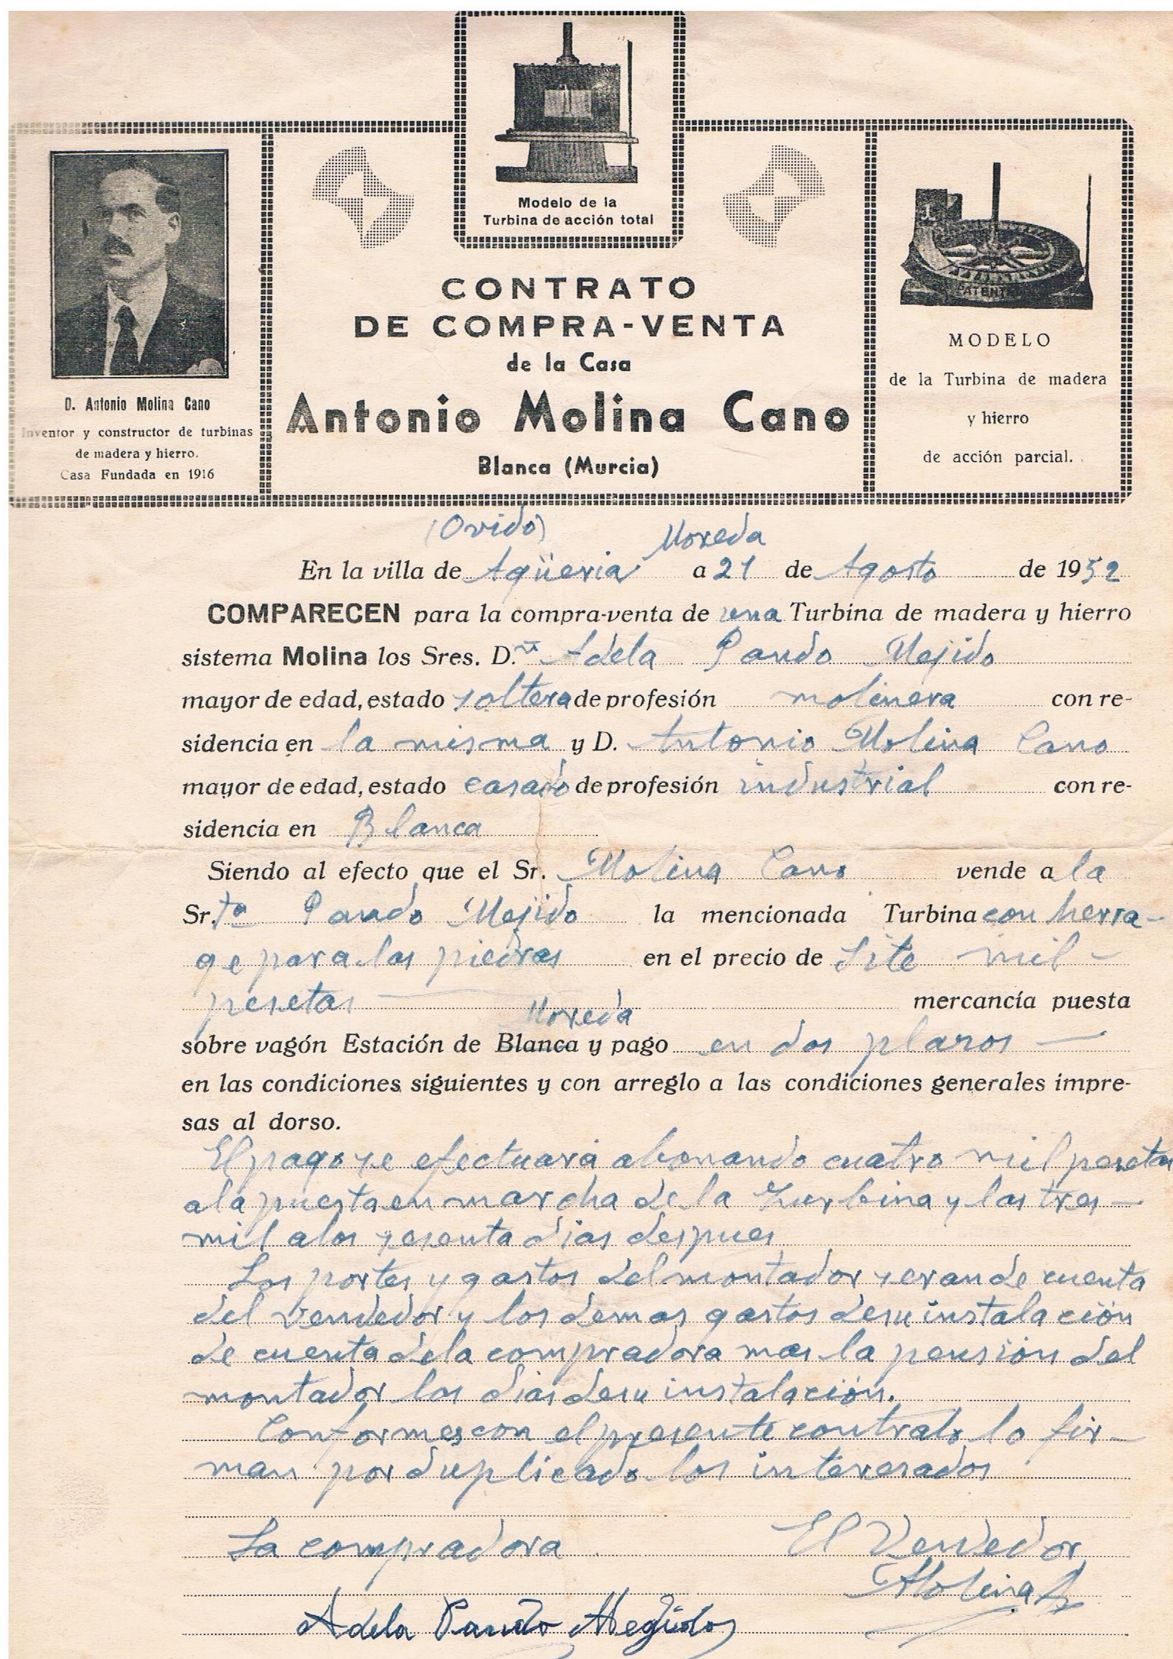 Modelo de la
Turbina de acción total
PATENT
D. Antonio Molina Cano
Inventor y constructor de turbinas
de madera y hierro.
Casa Fundada en 1916
CONTRATO
DE COMPRA-VENTA
de la Casa
Antonio Molina Cano
Blanca (Murcia)
MODELO
de la Turbina de madera
y hierro
de acción parcial.
(Ovido) Moreda
En la villa de Agüeria a 21 de Agosto de 1952
COMPARECEN para la compra-venta de una Turbina de madera y hierro
sistema Molina los Sres. D.ª Adela Pando Mejido
mayor de edad, estado soltera de profesión molinera con re-
sidencia en la misma y D. Antonio Molina Cano
mayor de edad, estado casado de profesión industrial con re-
sidencia en Blanca
Siendo al efecto que el Sr. Molina Cano vende a la
Sr.ta Pando Mejido la mencionada Turbina con herra-
ge para las piedras en el precio de Site mil -
pesetas mercancía puesta
Moreda
sobre vagón Estación de Blanca y pago en dos plazos —
en las condiciones siguientes y con arreglo a las condiciones generales impre-
sas al dorso.
El pago se efectuará abonando cuatro mil pesetas
a la puesta en marcha de la Turbina y las tres -
mil a los sesenta dias despues
Los portes y gastos del montador seran de cuenta
del vendedor y los demas gastos de su instalación
de cuenta dela compradora mas la pensión del
montador los dias de su instalación.
Conformes con el presente contrato lo fir-
man por duplicado los interesados
La compradora El Vendedor
Molina
Adela Pando Megido